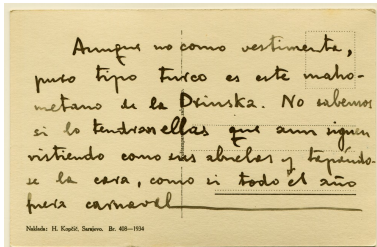 Aunque no como vestimenta,
puro tipo turco es este maho-
metano de la Drinska. No sabemos
si lo tendran ellas que aun siguen
vistiendo como sus abuelas y tapándo-
se la cara, como si todo el año
fuera carnaval
Naklada: H. Kopčić, Sarajevo. Br. 408—1934